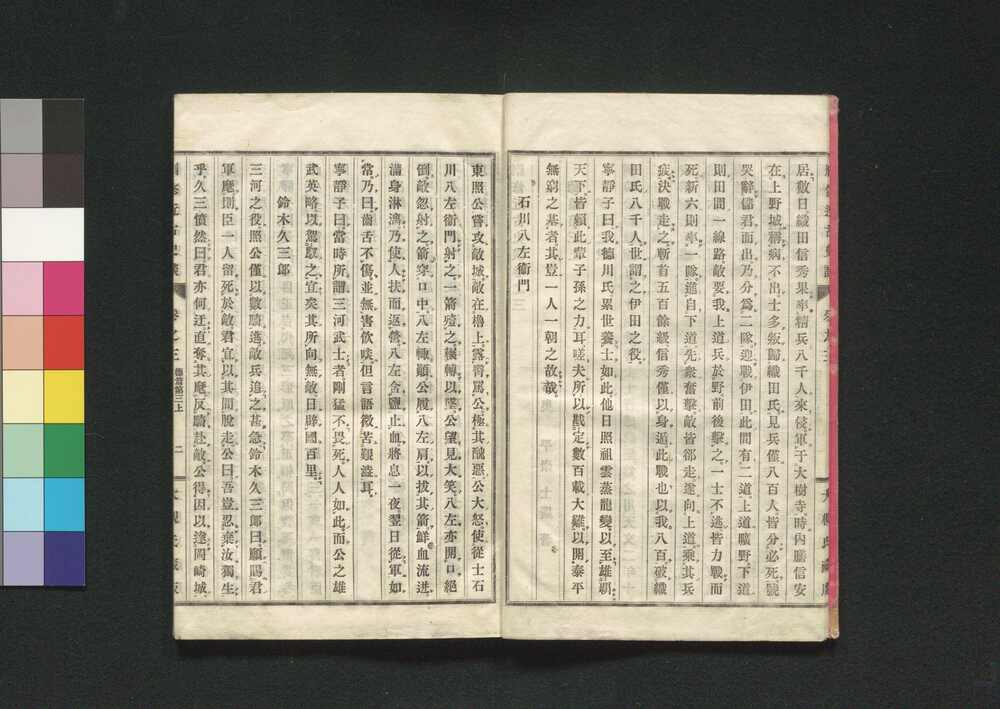 居數日織田信秀果率精兵八千人來侵軍于大樹寺時內膳信安
在上野城稱病不出士多叛歸織田氏見兵僅八百人皆分必死號
哭辭儲君而出乃分爲二隊迎戰伊田此間有二道上道曠野下道
則田間一線路敵要我上道兵於野前後擊之一士不逃皆力戰而
死新六則率一隊道自下道先衆奮擊敵皆郤走遂向上道乘其兵
疲決戰走之斬首五百餘級信秀僅以身遁此戰也以我八百破織
田氏八千人世謂之伊田之役
寧靜子曰我德川氏累世養士如此他日照祖雲蒸龍變以至雄覇
天下皆賴此輩子孫之力耳嗟夫所以戡定數百載大難以開泰平
無窮之基者其豈一人一朝之故哉
石川八左衞門
東照公嘗攻敵城敵在櫓上露臀罵公極其醜惡公大怒使從士石
川八左衞門射之一箭殪之轗轉以墜公望見大笑八左亦開口絕
倒敵忽射之箭穿口中八左輙顧公屐八左肩以拔其箭鮮血流迸
滿身淋漓乃使人扶而返營八左含鹽止血將息一夜翌日從軍如
常乃曰齒舌不傷並無害飮啖但言語微苦艱澁耳
寧靜子曰當時所謂三河武士者剛猛不畏死人人如此而公之雄
武英略以駕馭之宜矣其所向無敵日辟國百里
鈴木久三郎
三河之役照公僅以數騎遁敵兵追之甚急鈴木久三郎曰願賜君
軍麾則臣一人留死於敵君宜以其間脫走公曰吾豈忍棄汝獨生
乎久三憤然曰君亦何迂直奪其麾反騎赴敵公得因以達岡崎城
卷之三
德篇第三上
二